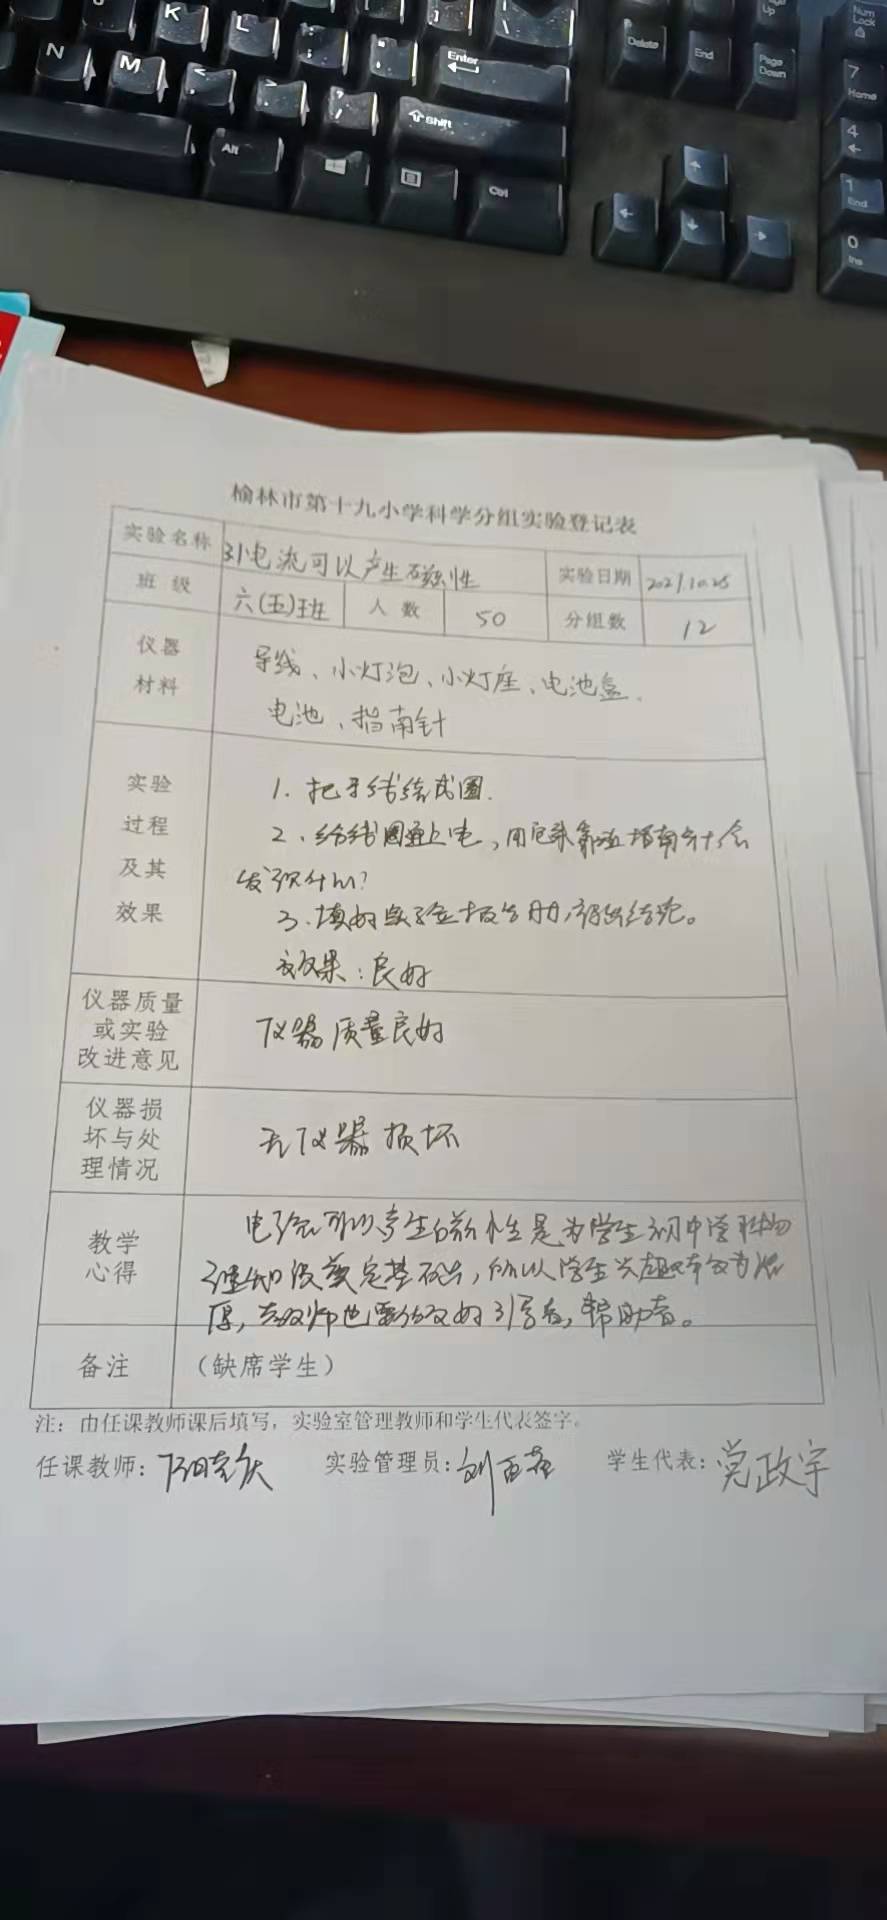 K
L
N
M
Enter
Shift
Alt
Ctrl
Delete
End
Up
Page Down
Num Lock
7 Home
4
1 End
0 Ins
榆林市第十九小学科学分组实验登记表
实验名称 引电流可以产生磁性 实验日期 2021.10.25
班 级 六(五)班 人 数 50 分组数 12
仪器 材料 导线、小灯泡、小灯座、电池盒、
电池、指南针
实验 过程 及其 效果 1. 把导线绕成圈.
2、给线圈通上电,用它来靠近指南针会
发现什么?
3.填好实验报告册,得出结论。
效果:良好
仪器质量 或实验 改进意见 仪器质量良好
仪器损 坏与处 理情况 无仪器损坏
教学 心得 电流可以产生磁性是为学生初中学
知识奠定基础,所以学生兴趣
厚,教师也要做好引导者,帮助者。
备注 (缺席学生)
注:由任课教师课后填写,实验室管理教师和学生代表签字。
任课教师: 实验管理员:刘 学生代表:党政宇